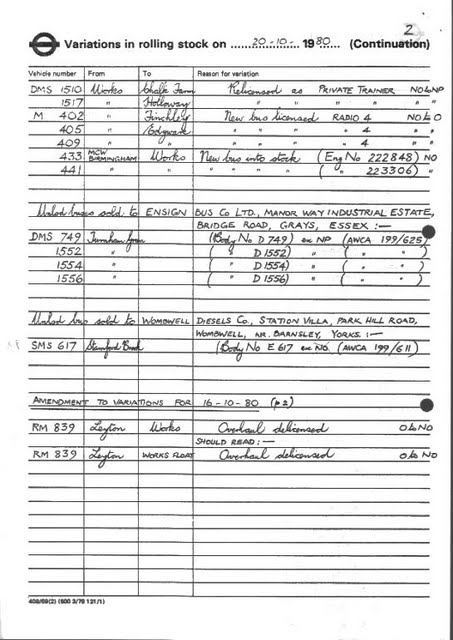 2
Variations in rolling stock on 20-10- 1980 (Continuation)
Vehicle number From To Reason for variation
DMS 1510 Works Chalk Farm Relicensed as PRIVATE TRAINER NO to NP
1517 " Holloway " " " " " "
M 402 " Finchley New bus licensed RADIO 4 NO to O
405 " Edgware " " " " 4 " "
409 " " " " " " 4 " "
433 MCW BIRMINGHAM Works New bus into stock (Eng No 222848) NO
441 " " " ( " 223306) "
Unlcd buses sold to ENSIGN BUS CO LTD., MANOR WAY INDUSTRIAL ESTATE,
BRIDGE ROAD, GRAYS, ESSEX :—
DMS 749 Turnham Green (Body No D 749) ex NP (AWCA 199/625)
1552 " ( " D 1552) " ( " " )
1554 " ( " D 1554) " ( " " )
1556 " ( " D 1556) " ( " " )
Unlcd bus sold to WOMBWELL DIESELS CO., STATION VILLA, PARK HILL ROAD,
WOMBWELL, NR. BARNSLEY, YORKS. :—
SMS 617 Stamford Brook (Body No E 617 ex NO. (AWCA 199/611)
AMENDMENT TO VARIATIONS FOR 16-10-80 (p 2)
RM 839 Leyton Works Overhaul delicensed O to NO
SHOULD READ :—
RM 839 Leyton WORKS FLOAT Overhaul delicensed O to NO
408/69(2) (500 3/79 121/1)